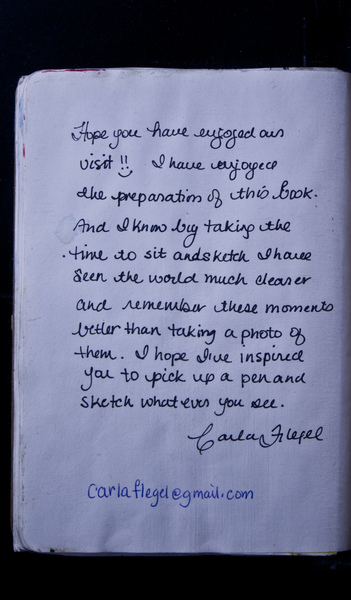 Hope you have enjoyed our
visit!!  I have enjoyed
the preparation of this book.
And I know by taking the
time to sit and sketch I have
seen the world much clearer
and remember these moments
better than taking a photo of
them. I hope I've inspired
you to pick up a pen and
sketch what ever you see.
Carla Flegel
carlaflegel@gmail.com